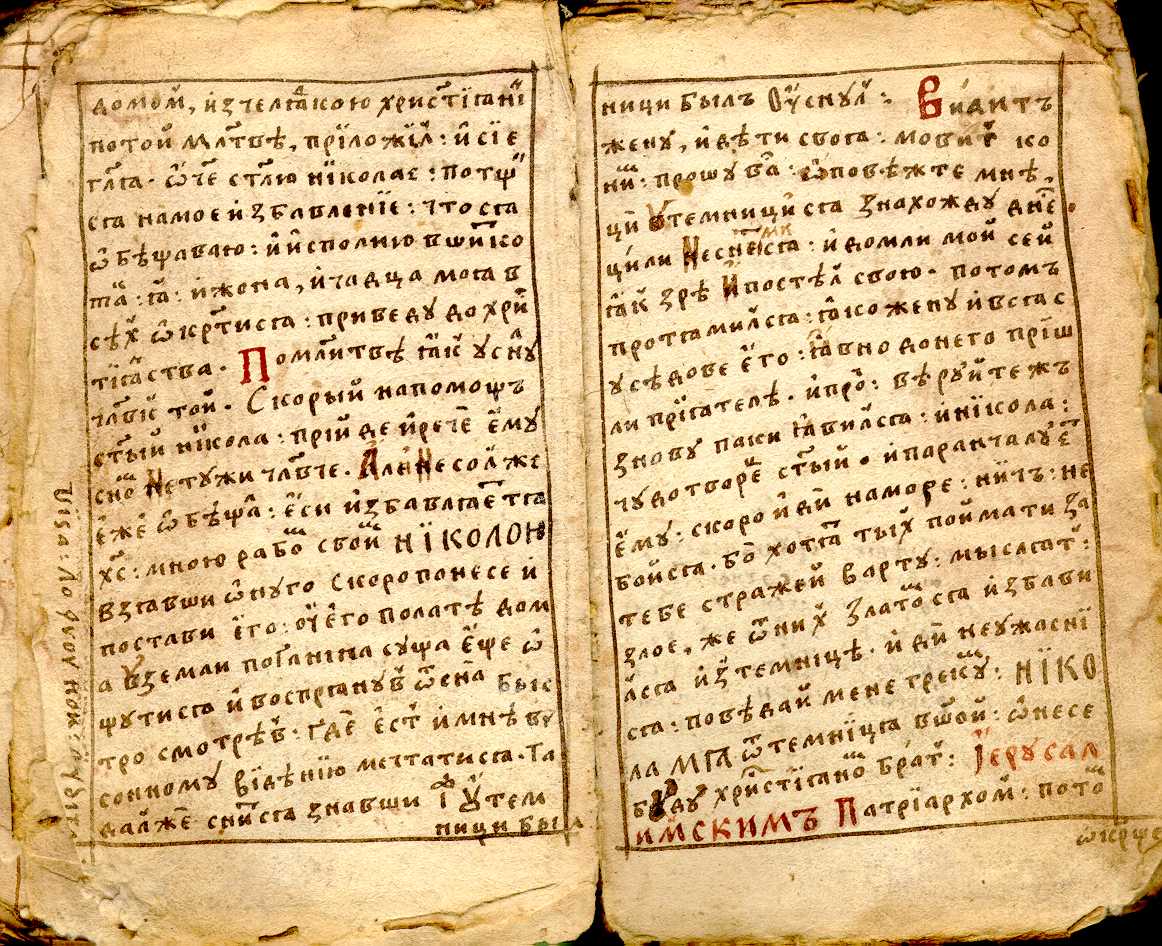 домом̾, и҆ з челѧдкою христїѧнї
по той мл҃твѣ, прїложи́л̾: и҆ сїе
гл҃ѧ. ѽч҃е ст҃лю нїколае: потщи
сѧ на мое и҆збавленїе: что сѧ
ѡ҆бѣщаваю: и҆ и҆сполню вши́ко
и҆ жона, и҆ чадца моѧ в
сѣх̾ ѡ҆кр҃тисѧ: приведу до хри́
тїѧства. По мл҃итвѣ ꙗ҆к̾ усну
чл҃вк̾ той. Скорый на помощъ
ст҃ый нїкола: прїйде и҆ рече є҆му
не тужи чл҃вче. Але не сол̾же
є҆же ѡ҆бѣща: є҆си и҆збавлѧетсѧ
хс҃: мною рабо̑ свои́ НЇКОЛОЮ
взѧвши ѻ҆нуго скоро понесе и
постави є҆го: оу҆ є҆го полатѣ дом
а в земли поганїна суща є҆ще ѡ
щутисѧ и҆ воспрѧнув̾ ѿ сна бы́с
тро смотрѣв̾: где є҆ст̾ и҆ мнѣ ву
сонному вїдѣнїю мечтатисѧ. Та
далже сни́сѧ знавши і у тем
ници бы́л
ници былъ оу҆снул̾: Видитъ
жену, и҆ дѣти своѧ: мовит̾ ко
ни́: прошу ва́: ѡ҆повѣжте мнѣ,
ци́ у темници́ сѧ знахожду дне
ци́ли не сне сѧ: и҆ дом ли мой сей
ꙗ҆к̾ зрѣ и҆ постел̾ свою. потомъ
протѧмилсѧ: ꙗ҆ко жену и҆ всѧ с
усѣдове є҆го: ꙗ҆вно до него прїш
ли прїѧтелѣ. и҆ про́: вѣруйте жъ
знову паки ꙗ҆вилсѧ: и҆ нїкола:
чудотворе́ ст҃ый. и҆ паранчалу є
є҆му: скоро и҆ди́ на море: ни́чъ: не
бо́йсѧ. бо́ хотѧ тых̾ поймати за
тебе стражей варту: мыслѧт̾:
злое, же ѿ них̾ злато́ сѧ и҆збави
лсѧ и҆з̾ темнїцѣ. и҆ ди́ не ужасні
сѧ: повѣдай мене греку: НЇКО
ЛА МѦ ѿ темнїцѧ вшой: ѻ҆несе
буду хрїстїѧно́ брат̾: Їерусал
имскимъ Патрїархом̾: пото
ѡ҆крще